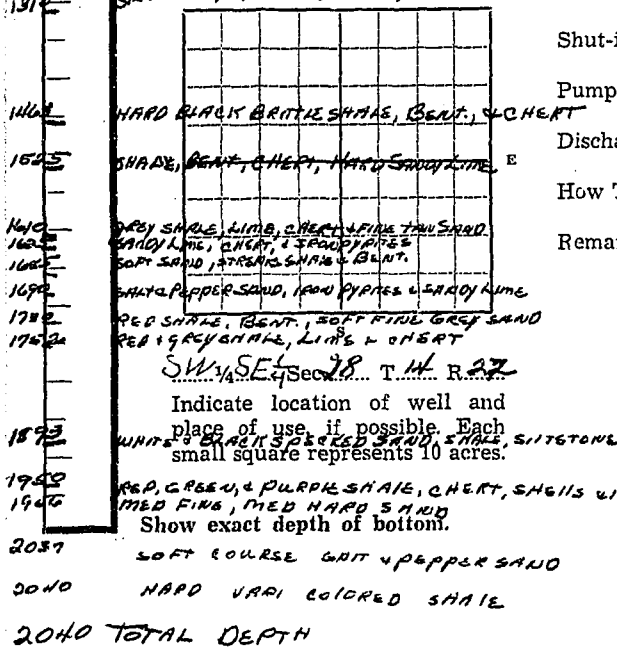 Shut-i
Pump
HARD BLACK BRITTLE SHALE, BENT., & CHERT
Discha
1525 SHALE, BENT, CHERT, HARD SANDY LIME E
How T
1610 GREY SHALE, LIME, CHERT & FINE TAN SAND
SANDY LIME, CHERT, & IRON PYRITES
Remar
SOFT SAND, STREAKS SHALE & BENT.
1690 SALT & PEPPER SAND, IRON PYRITES & SANDY LIME
RED SHALE, BENT., SOFT FINE GREY SAND
S
1752 RED & GREY SHALE, LIME & CHERT
SW 1/4 SE 1/4 Sec. 28 T. 14 R. 22
Indicate location of well and
place of use, if possible. Each
1893 WHITE & BLACK SPECKED SAND, SHALE, SILTSTONE
small square represents 10 acres.
1950 RED, GREEN, & PURPLE SHALE, CHERT, SHELLS
1966 MED FINE, MED HARD SAND
Show exact depth of bottom.
2037 SOFT COURSE SALT & PEPPER SAND
2040 HARD VARI COLORED SHALE
2040 TOTAL DEPTH